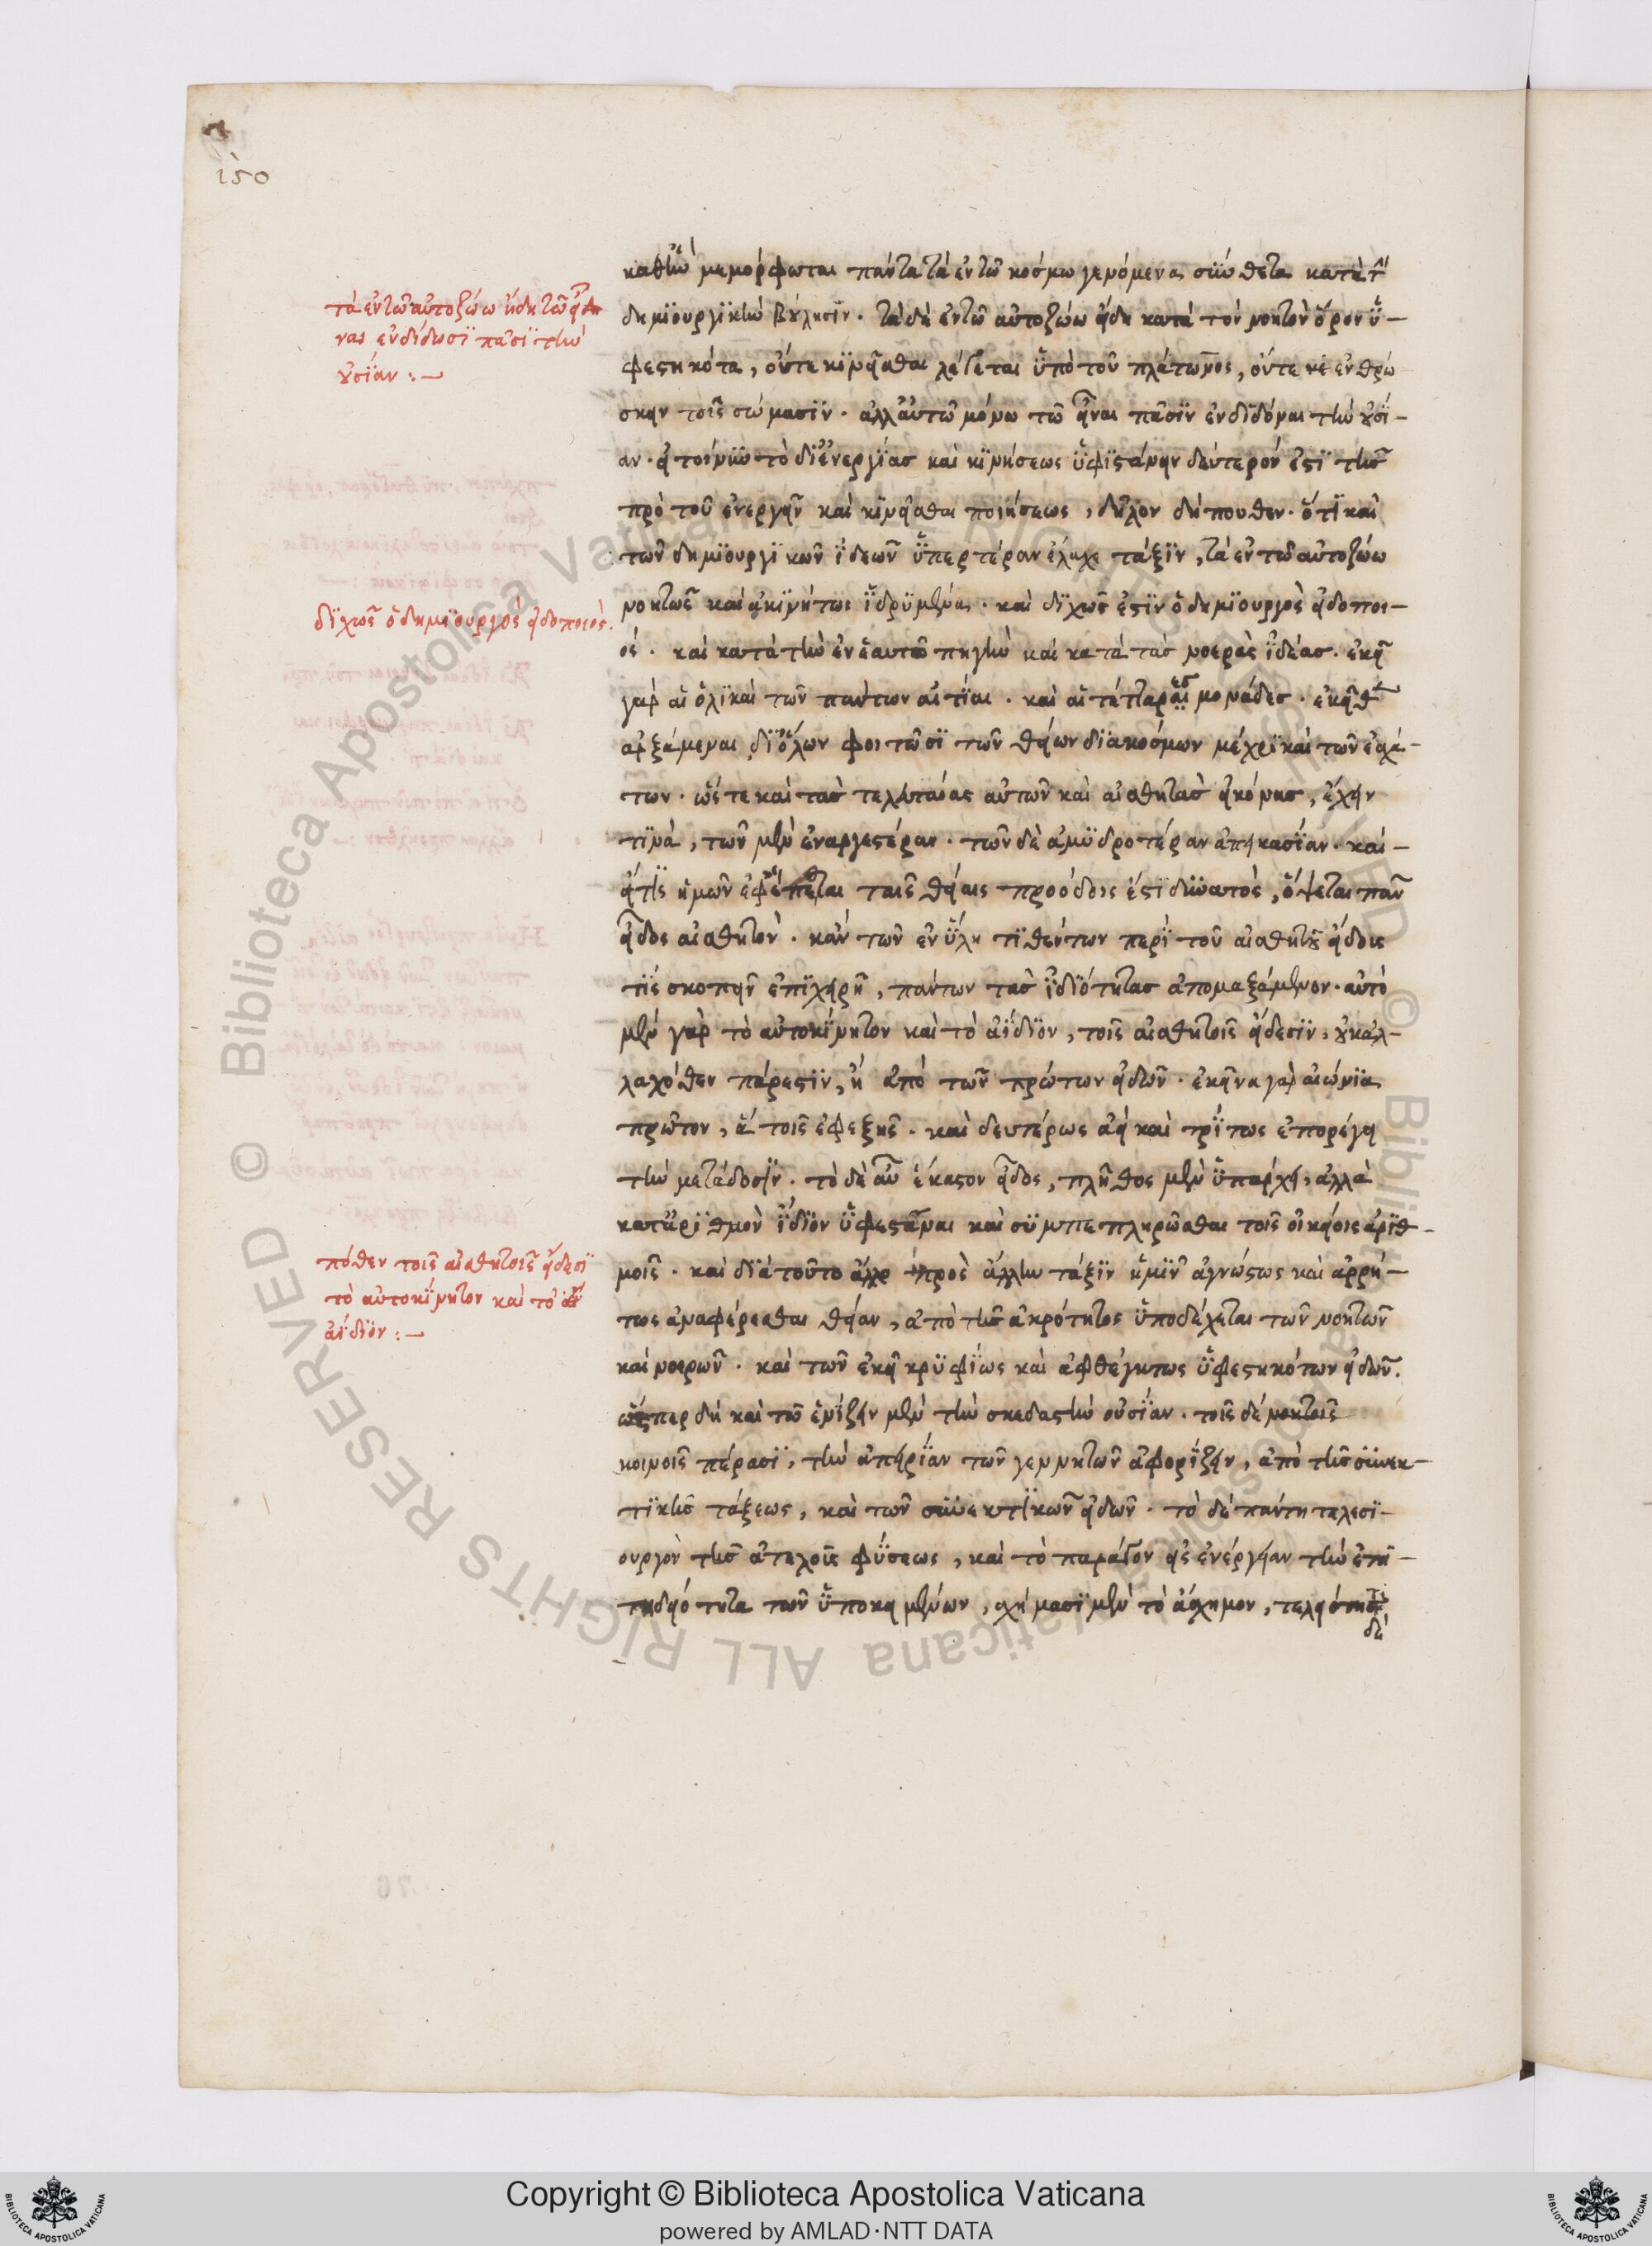 150
καθ' ἣν μεμόρφωται πάντα τὰ ἐν τῶ κόσμω γενόμενα σύνθετα κατὰ τὴν
τὰ ἐν τῶ αὐτοζώω εἴδη τῶ εἶ
ναι ἐνδίδωσι πᾶσι τὴν
οὐσίαν :—
δημιουργικὴν βούλησιν . τὰ δὲ ἐν τῶ αὐτοζώω εἴδη κατὰ τὸν νοητὸν ὅρον ὑ-
φεστηκότα, οὔτε κινεῖσθαι λέγεται ὑπὸ τοῦ πλάτωνος, οὔτε ἐνθρώ
σκειν τοῖς σώμασιν . ἀλλ' αὐτῶ μόνω τῶ εἶναι πᾶσιν ἐνδιδόναι τὴν οὐσί-
αν . εἰ τοίνυν τὸ δι' ἐνεργείας καὶ κινήσεως ὑφιστάνειν δεύτερόν ἐστι τῆς
πρὸ τοῦ ἐνεργεῖν καὶ κινεῖσθαι ποιήσεως, δῆλον δήπουθεν . ὅτι καὶ
τῶν δημιουργικῶν ἰδεῶν ὑπερτέραν ἔλαχε τάξιν, τὰ ἐν τῶ αὐτοζώω
νοητῶς καὶ ἀκινήτως ἱδρυμένα . καὶ διχῶς ἐστὶν ὁ δημιουργὸς εἰδοποι-
διχῶς ὁ δημιουργὸς εἰδοποιός.
ός . καὶ κατὰ τὴν ἐν ἑαυτῶ πηγὴν καὶ κατὰ τὰς νοερὰς ἰδέας . ἐκεῖ
γὰρ αἱ ὁλικαὶ τῶν πάντων αἰτίαι . καὶ αἱ τέτταρες μονάδες . ἐκεῖθεν
ἀρξάμεναι δι' ὅλων φοιτῶσι τῶν θείων διακόσμων μέχρι καὶ τῶν ἐσχά-
των . ὥστε καὶ τὰς τελευταίας αὐτῶν καὶ αἰσθητὰς εἰκόνας, ἔχειν
τινὰ, τῶν μὲν ἐναργεστέραν . τῶν δὲ ἀμυδροτέραν ἀπεικασίαν . καὶ-
εἴ τις ἡμῶν ἐφέπεσθαι ταῖς θείαις προόδοις ἐστὶ δυνατὸς, ὄψεται πᾶν
εἶδος αἰσθητὸν . κἂν τῶν ἐν ὕλη τιθέντων περὶ τοῦ αἰσθητοῦ εἴδους
τις σκοπεῖν ἐπιχειρῆ, πάντων τὰς ἰδιότητας ἀπομαξάμενον . αὐτὸ
μὲν γὰρ τὸ αὐτοκίνητον καὶ τὸ ἀίδιον, τοῖς αἰσθητοῖς εἴδεσιν, οὐκ ἀλ-
λαχόθεν πάρεστιν, ἢ ἀπὸ τῶν πρώτων εἰδῶν . ἐκεῖνα γὰρ αἰώνια
πρῶτον, ἃ τοῖς ἐφεξῆς . καὶ δευτέρως ἀεὶ καὶ τρίτως ἐπορέγει
τὴν μετάδοσιν . τὸ δὲ αὖ ἕκαστον εἶδος, πλῆθος μὲν ὑπάρχει, ἀλλὰ
κατ' ἀριθμὸν ἴδιον ὑφεστάναι καὶ συμπεπληρῶσθαι τοῖς οἰκείοις ἀριθ-
πόθεν τοῖς αἰσθητοῖς εἴδεσι
τὸ αὐτοκίνητον καὶ τὸ
ἀίδιον :—
μοῖς . καὶ διὰ τοῦτο ἄλλο πρὸς ἄλλην τάξιν ἡμῖν ἀγνώστως καὶ ἀρρή-
τως ἀναφέρεσθαι θείαν, ἀπὸ τῆς ἀκρότητος ὑποδέχεται τῶν νοητῶν
καὶ νοερῶν . καὶ τῶν ἐκεῖ κρυφίως καὶ ἀφθέγκτως ὑφεστηκότων εἰδῶν.
ὥσπερ δὴ καὶ τὸ ἑνίζειν μὲν τὴν σκεδαστὴν οὐσίαν . τοῖς δὲ νοητοῖς
κοινοῖς πέρασι, τὴν ἀπειρίαν τῶν γεννητῶν ἀφορίζειν, ἀπὸ τῆς συνεκ-
τικῆς τάξεως, καὶ τῶν συνεκτικῶν εἰδῶν . τὸ δὲ πάντη τελεσι-
ουργὸν τῆς ἀτελοῦς φύσεως, καὶ τὸ παράγον εἰς ἐνέργειαν τὴν ἐπι-
τηδειότητα τῶν ὑποκειμένων, σχήμασι μὲν τὸ ἄσχημον, τελειότησι
δὲ
76
Copyright © Biblioteca Apostolica Vaticana
powered by AMLAD·NTT DATA